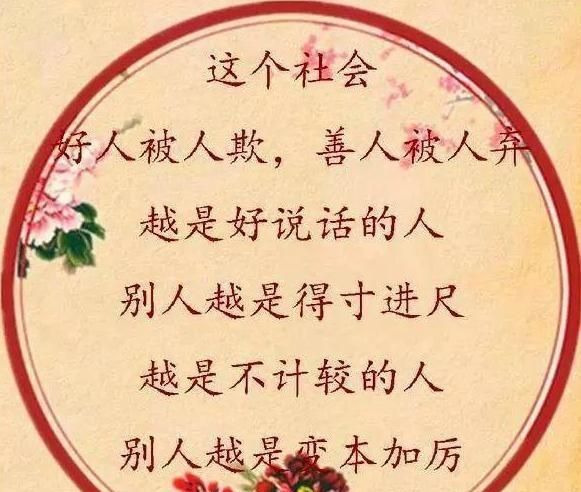 这个社会
好人被人欺，善人被人弃
越是好说话的人
别人越是得寸进尺
越是不计较的人
别人越是变本加厉